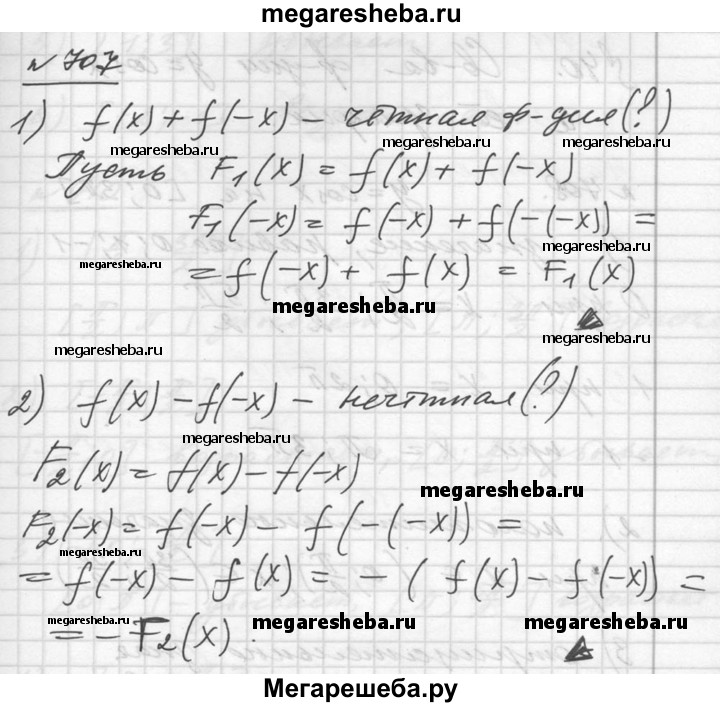 megaresheba.ru
№ 707
1) f(x) + f(-x) – чётная ф-ция (?)
megaresheba.ru megaresheba.ru
Пусть F₁(x) = f(x) + f(-x)
F₁(-x) = f(-x) + f(-(-x)) =
megaresheba.ru
megaresheba.ru
= f(-x) + f(x) = F₁(x)
megaresheba.ru
megaresheba.ru
megaresheba.ru
2) f(x) – f(-x) – нечётная (?)
megaresheba.ru
F₂(x) = f(x) – f(-x)
megaresheba.ru
F₂(-x) = f(-x) – f(-(-x)) =
megaresheba.ru
= f(-x) – f(x) = – (f(x) – f(-x)) =
= – F₂(x)
megaresheba.ru megaresheba.ru
Мегарешеба.ру